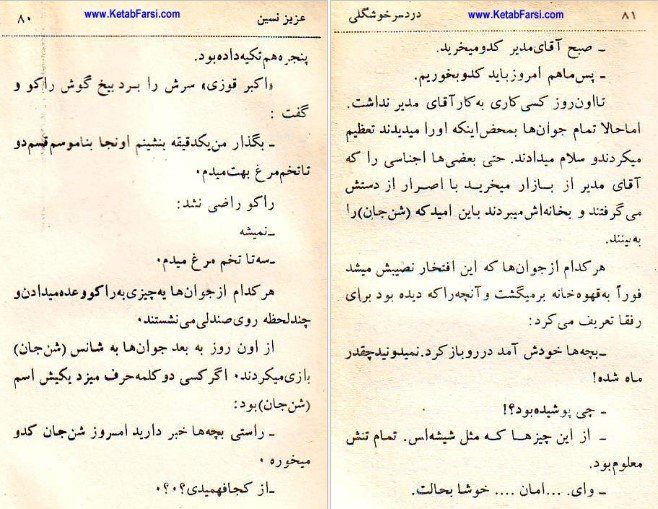 ۸۰ www.KetabFarsi.com عزیز نسین
پنجره هم تکیه داده بود.
«اکبر قوزی» سرش را برد بیخ گوش راکو و
گفت :
ـ بگذار من یکدقیقه بنشینم اونجا بناموسم قسم دو
تا تخم مرغ بهت میدم.
راکو راضی نشد:
ـ نمیشه
ـ سه تا تخم مرغ میدم.
هر کدام از جوان‌ها یه چیزی به راکو وعده میدادن و
چند لحظه روی صندلی می‌نشستند.
از اون روز به بعد جوان‌ها به شانس (شن جان)
بازی میکردند. اگر کسی دو کلمه حرف میزد یکیش اسم
(شن جان) بود:
ـ راستی بچه‌ها خبر دارید امروز شن جان کدو
میخوره.
ـ از کجا فهمیدی؟.؟.
۸۱ www.KetabFarsi.com دردسر خوشگلی
ـ صبح آقای مدیر کدو میخرید.
ـ پس ماهم امروز باید کدو بخوریم.
تا اون روز کسی کاری به کار آقای مدیر نداشت.
اما حالا تمام جوان‌ها بمحض اینکه او را میدیدند تعظیم
میکردند و سلام میدادند. حتی بعضی‌ها اجناسی را که
آقای مدیر از بازار میخرید با اصرار از دستش
می‌گرفتند و بخانه‌اش میبردند باین امید که (شن جان) را
به‌بینند.
هر کدام از جوان‌ها که این افتخار نصیبش میشد
فوراً به قهوه خانه برمیگشت و آنچه را که دیده بود برای
رفقا تعریف می‌کرد:
ـ بچه‌ها خودش آمد در رو باز کرد. نمیدونید چقدر
ماه شده!
ـ چی پوشیده بود؟!
ـ از این چیزها که مثل شیشه‌اس. تمام تنش
معلوم بود.
ـ وای. ... امان .... خوشا بحالت.